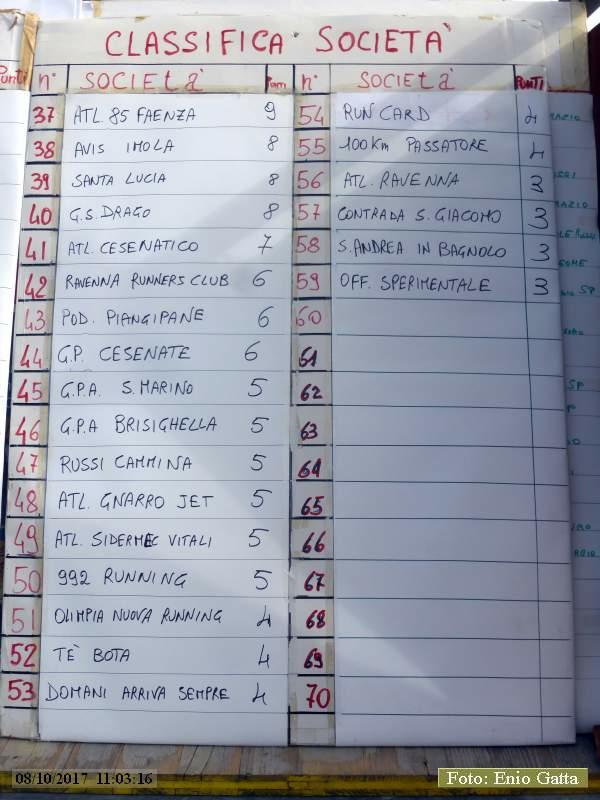 CLASSIFICA SOCIETA'
Punti n° SOCIETA' n° SOCIETA' PUNTI
37 ATL 85 FAENZA 9
38 AVIS IMOLA 8
39 SANTA LUCIA 8
40 G.S. DRAGO 8
41 ATL. CESENATICO 7
42 RAVENNA RUNNERS CLUB 6
43 POD. PIANGIPANE 6
44 G.P. CESENATE 6
45 G.P.A. S. MARINO 5
46 G.P.A BRISIGHELLA 5
47 RUSSI CAMMINA 5
48 ATL. GNARRO JET 5
49 ATL. SIDERMEC VITALI 5
50 992 RUNNING 5
51 OLIMPIA NUOVA RUNNING 4
52 TE' BOTA 4
53 DOMANI ARRIVA SEMPRE 4
54 RUN CARD 4
55 100 Km PASSATORE 4
56 ATL. RAVENNA 3
57 CONTRADA S. GIACOMO 3
58 S. ANDREA IN BAGNOLO 3
59 OFF. SPERIMENTALE 3
60
61
62
63
64
65
66
67
68
69
70
08/10/2017 11:03:16
Foto: Enio Gatta